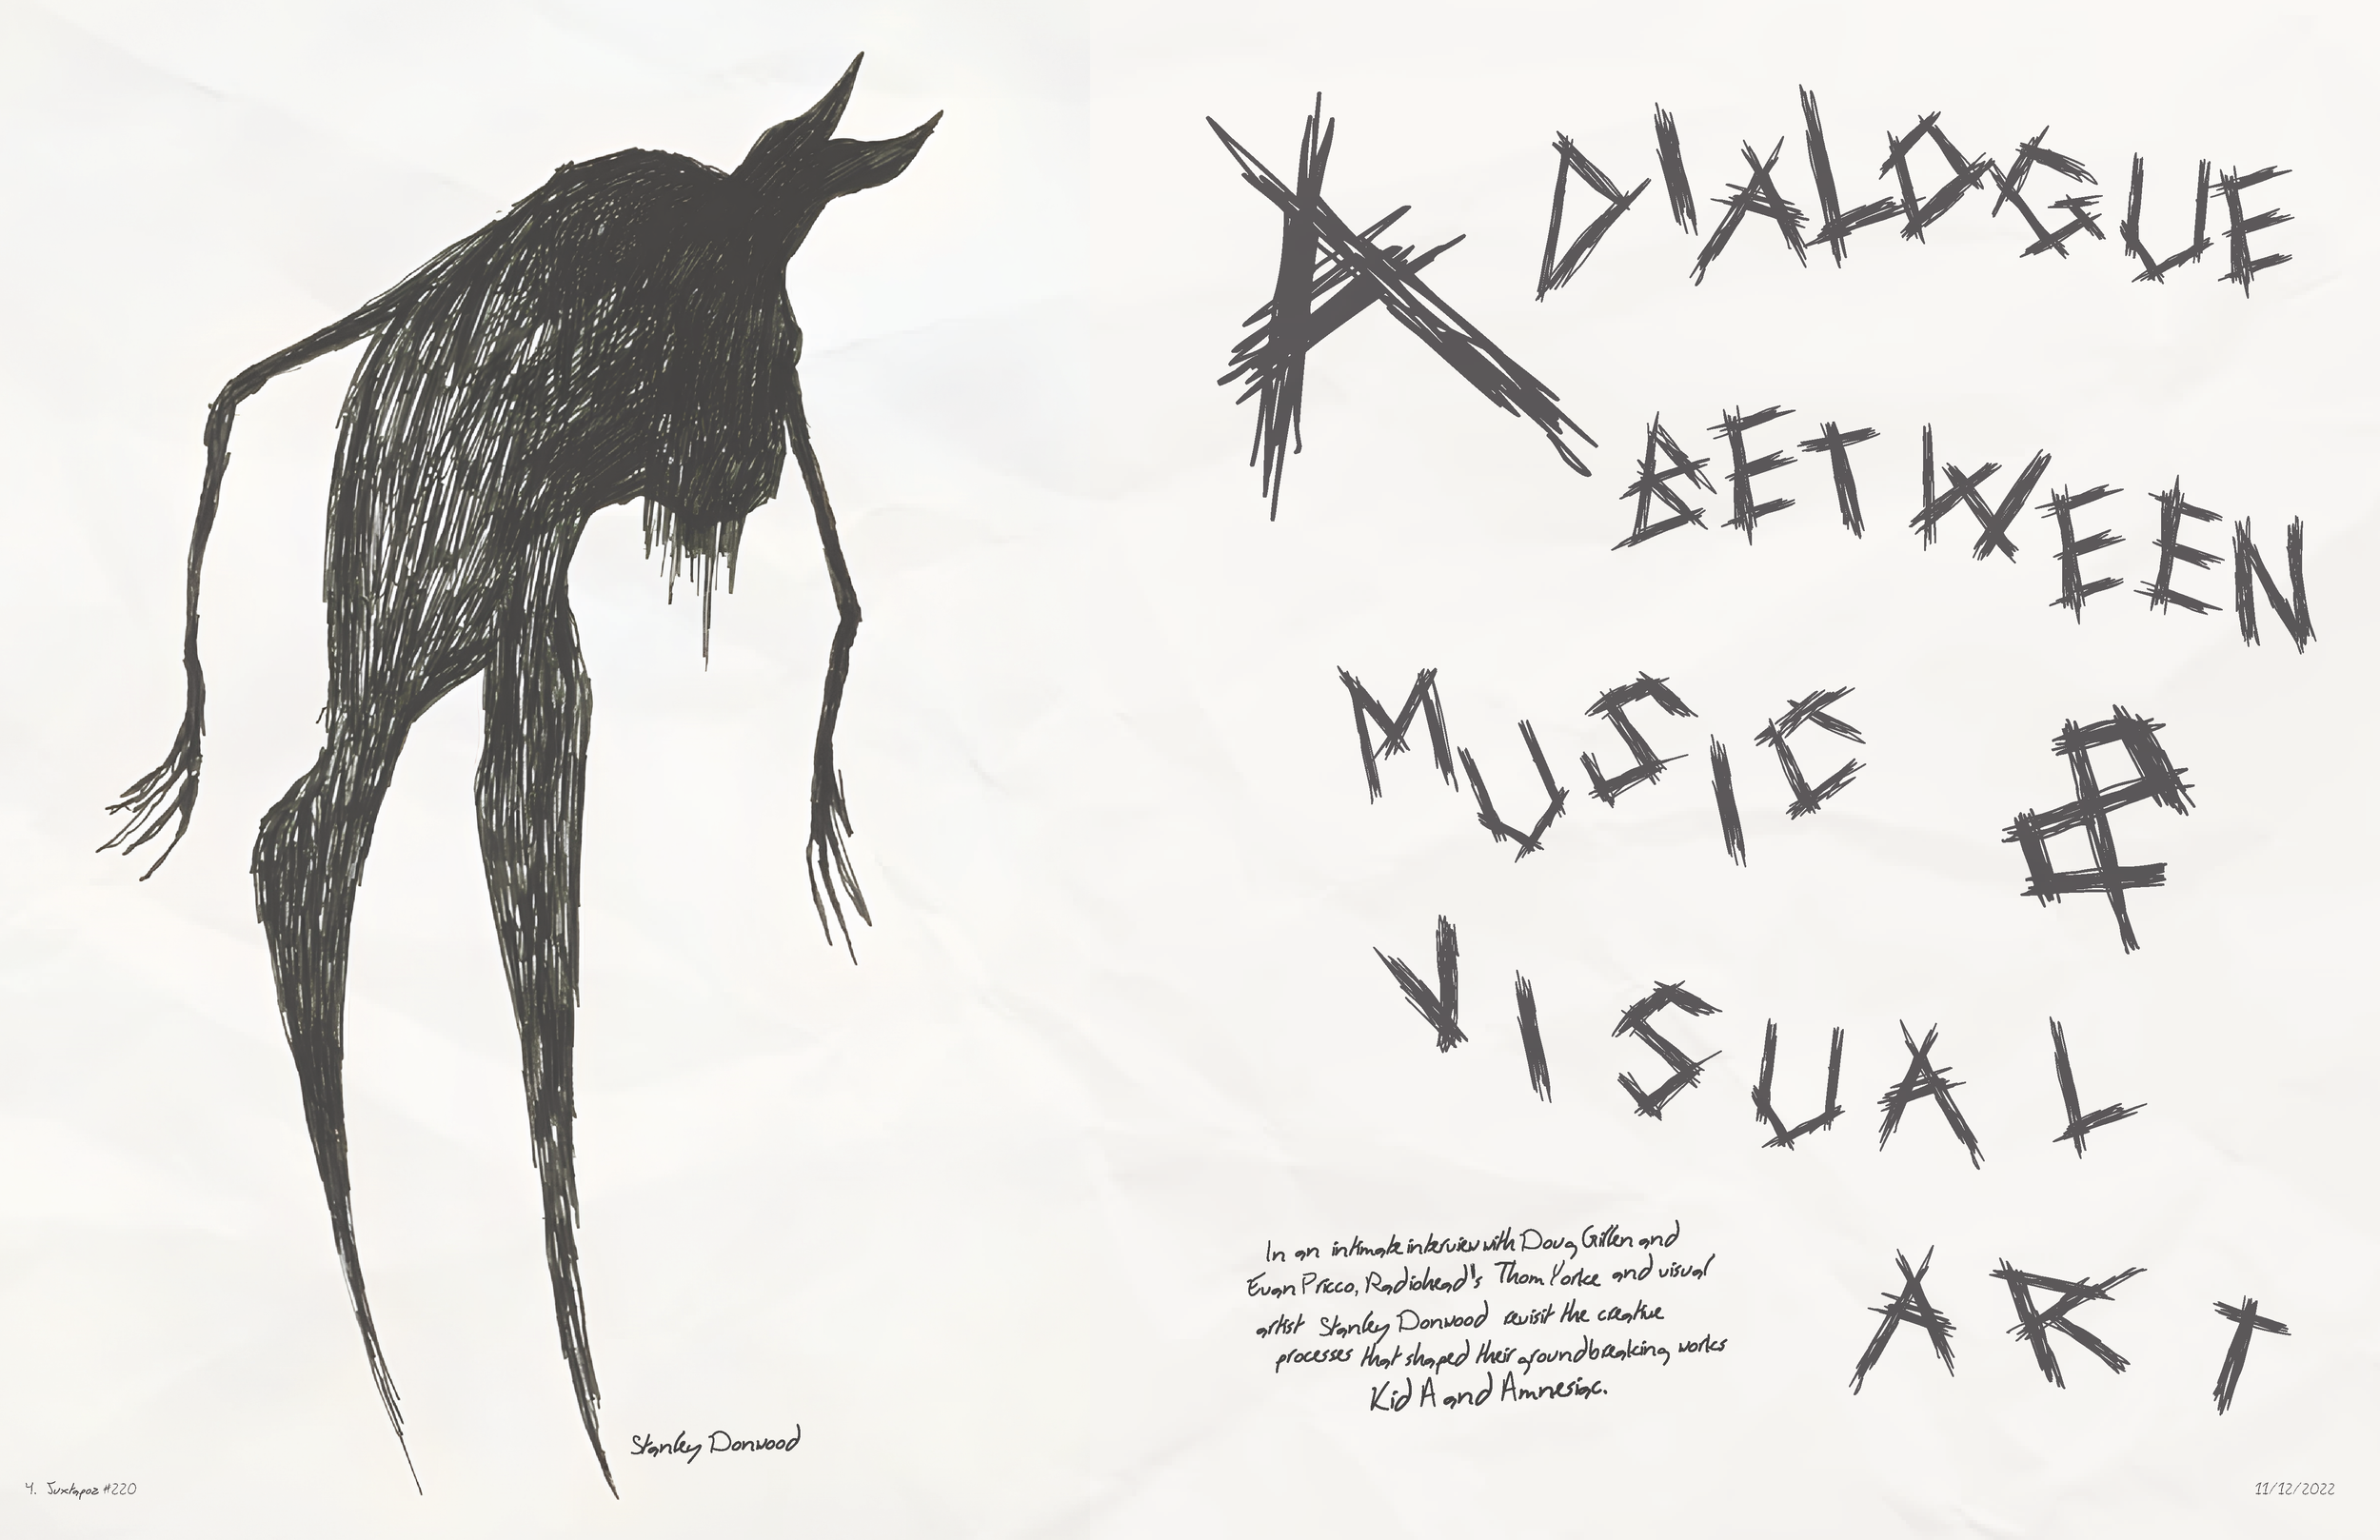 A DIALOGUE
BETWEEN
MUSIC &
VISUAL
ART
In an intimate interview with Doug Gillen and
Evan Pricco, Radiohead's Thom Yorke and visual
artist Stanley Donwood revisit the creative
processes that shaped their groundbreaking works
Kid A and Amnesiac.
Stanley Donwood
4. Juxtapoz #220
11/12/2022